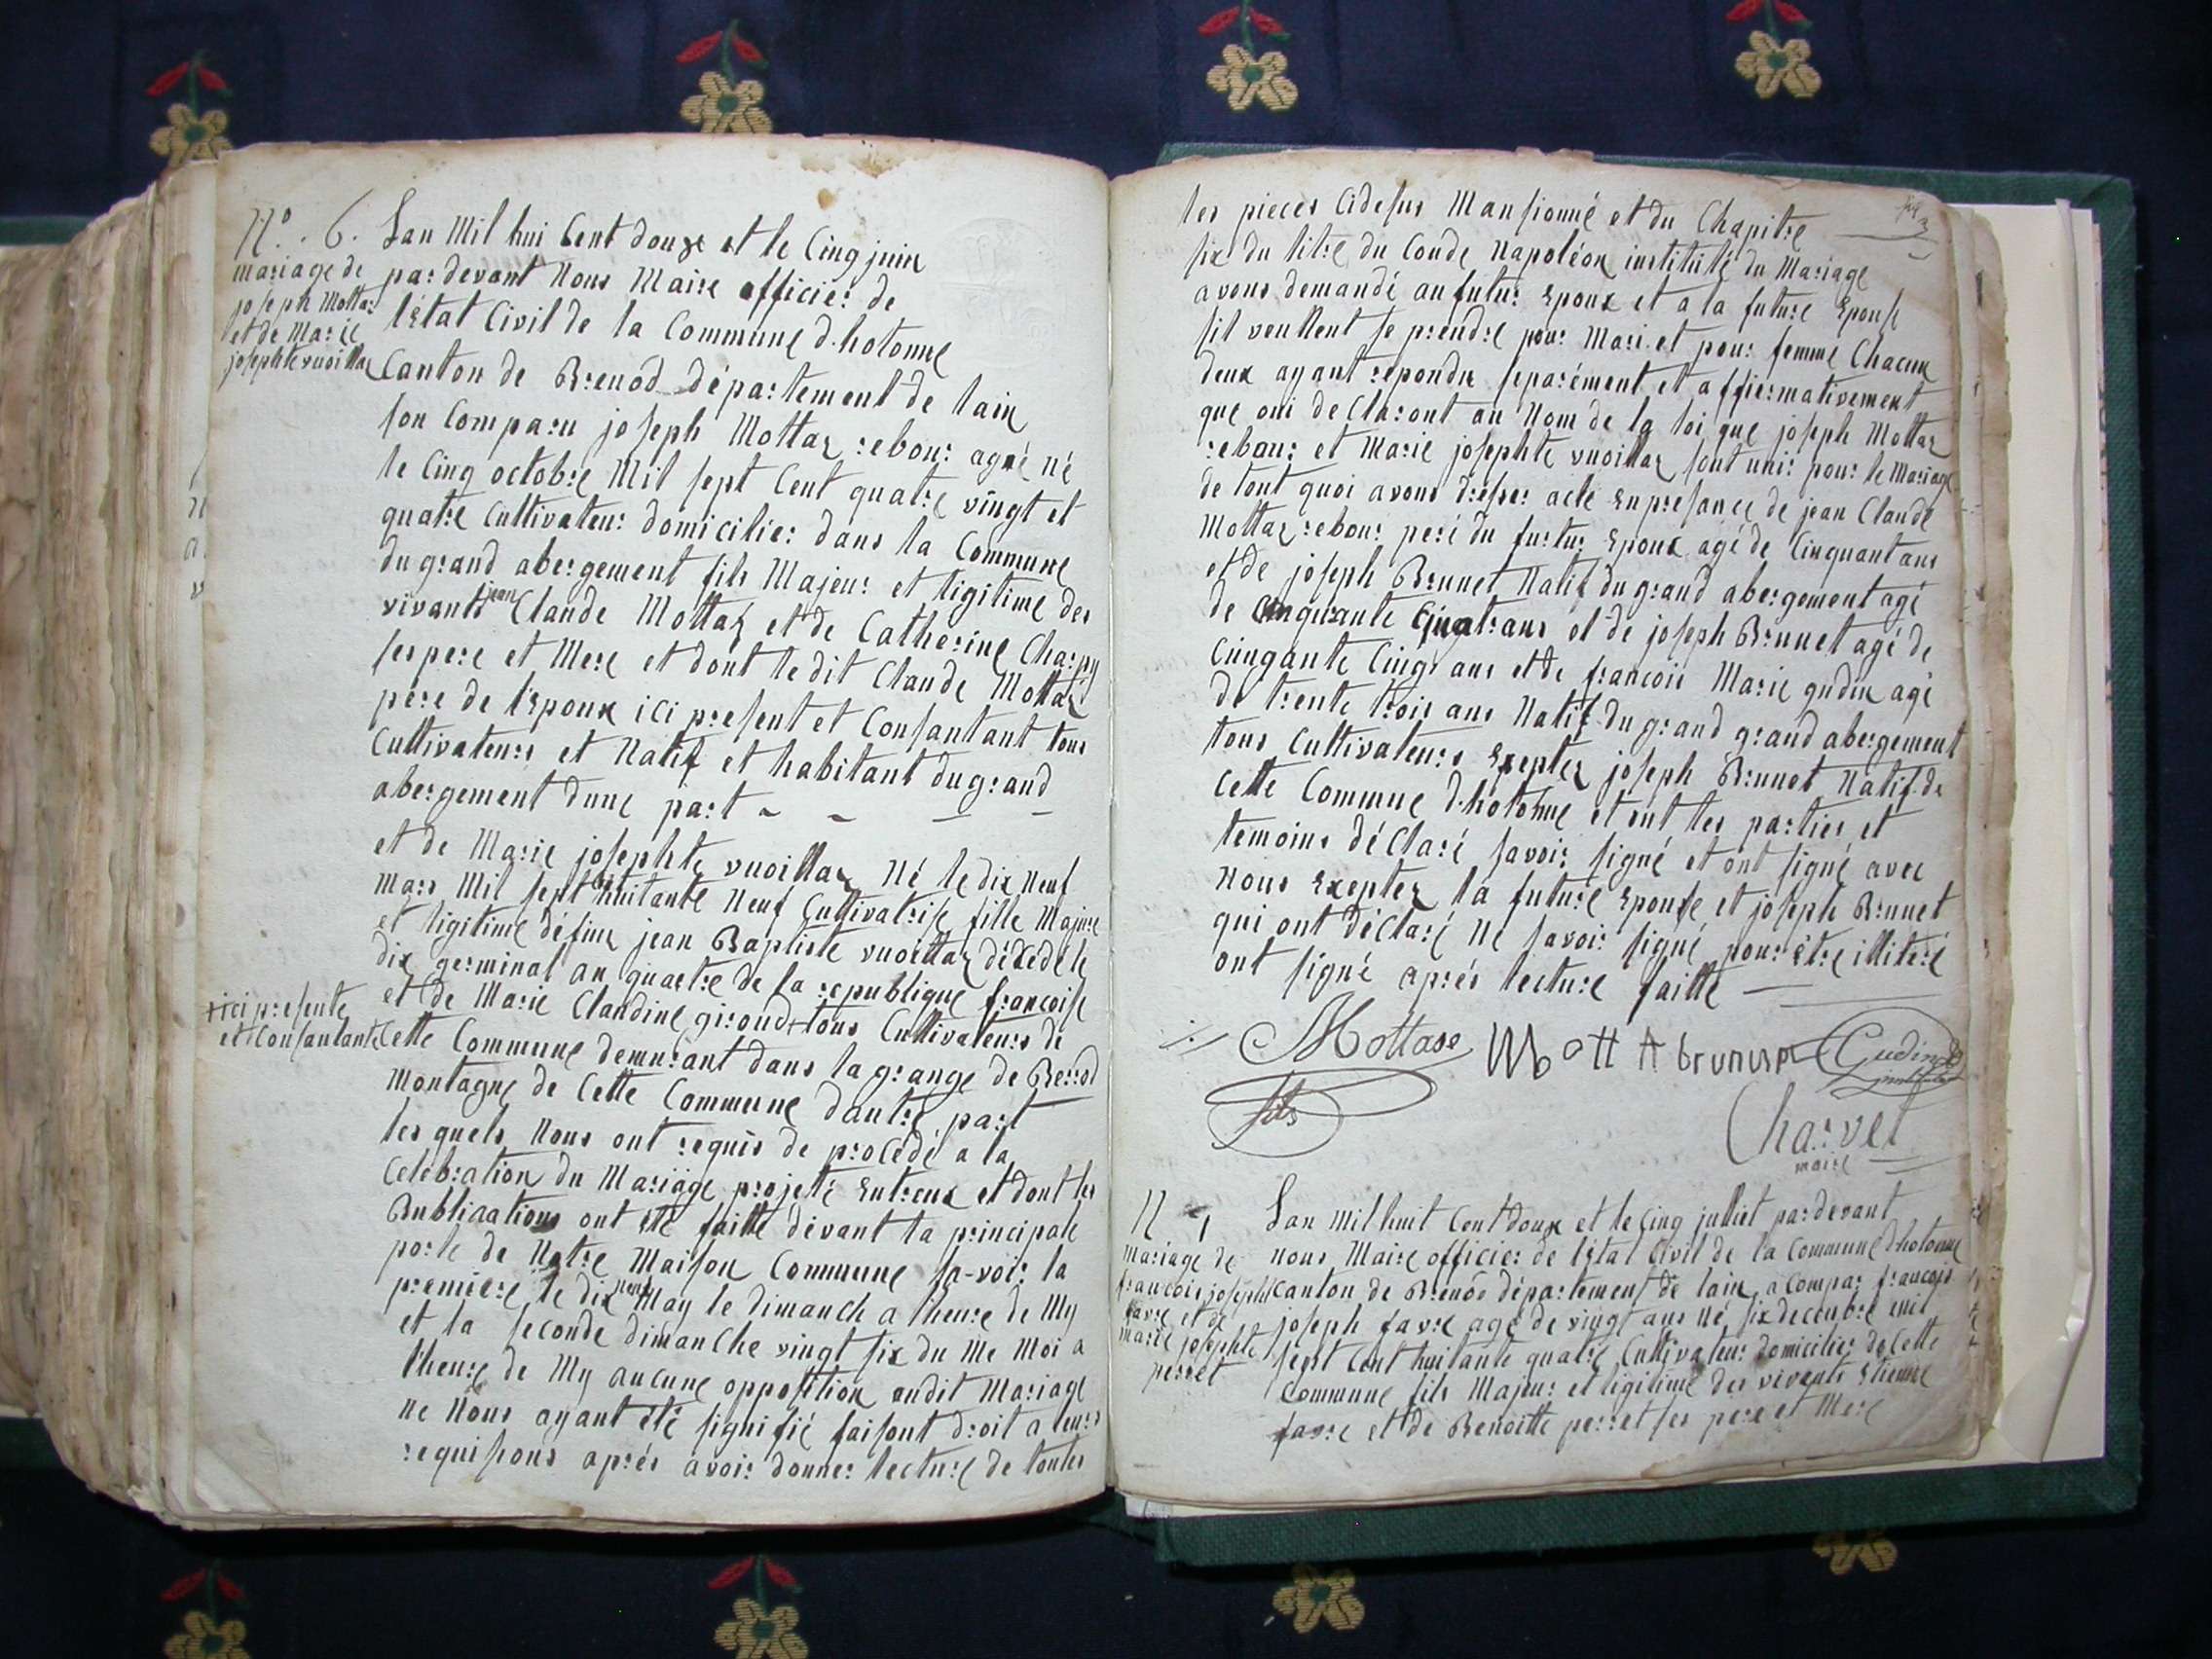 N.° . 6.
mariage de
joseph Mottaz
et de Marie
josephte vuoillaz
Lan Mil hui Cent douze et le Cinq juin
par devant Nous Maire officier de
l'Etat Civil de la Commune d.hotonne
Canton de Brenod département de lain
son Comparu joseph Mottaz rebour agé né
le Cinq octobre Mil sept Cent quatre vingt et
quatre Cultivateur domicilier dans la Commune
du grand abergement fils Majeur et ligitime des
vivants jean Claude Mottaz et de Catherine Charpy
ses pere et Mere et dont le dit Claude Mottaz
père de l'Epoux ici present et Consantant tous
Cultivateurs et Natif et habitant du grand
abergement dune part ~ ~ — —
et de Marie josephte vuoillaz Né le dix Neuf
mars Mil sept huitante Neuf Cultivatrise fille Majure
et ligitime défunt jean Baptiste vuoillaz dédédé le
dix germinal an quactre de la republique francoise
et de Marie Claudine giroud + tous Cultivateurs de
+ ici presente
et Consantante
Cette Commune demurant dans la grange de Berrod
Montagne de Cette Commune dautre part
les quels Nous ont requis de procédé a la
Celebration du Mariäge projeté Entreux et dont les
Publications ont été faitte dévant la principale
porte de Notre Maison Commune sa-voir la
premiere le dix neuf May le dimanch a lheure de My
et la seconde dimanche vingt six du Me Moi a
l'heure de My aucune opposition audit Mariage
ne Nous ayant été signifié faisont droit a leurs
requisons aprés avoir donner lecture de toutes
les pieces Cidesus Mansionné et du Chapitre
six du titre du Coude Napoléon institüté du Mariage
avons demandé au futur Epoux et a la future Epouse
sil veullent se prendre pour Mari et pour femme Chacun
deux ayant repondu separément et affiermativement
que oui declaront au Nom de la loi que joseph Mottaz
rebour et Marie josephte vuoillaz sont unir pour le Mariage
de tout quoi avons dresser acte En presance de jean Claude
Mottaz rebour peré du furtur Epoux agé de Cinquant ans
et de joseph Brunet Natif du grand abergement agé
de Cinquante ans et de joseph Brunet agé de
Cinngante Cinqr ans et de francois Marie gudin agé
de trente trois ans Natif du grand grand abergement
tous Cultivateurs Exeptez joseph Brunet Natif de
Cette Commune d.hotonne et ont les parties et
temoins déClaré savoir signé et ont signé avec
nous Exeptez la future Epouse et joseph Brunet
qui ont déClaré Ne savoir signé pour être illiteré
ont signé aprés lecture faitte —
Mottase Mott A brunet Gudin
fils
Charvet
maire
N 7
mariage de
francois joseph
favre et de
marie josephte
perret
Lan Mil huit Cent doux et le Cinq julliet par devant
nous Maire officier de l'Etat Civil de la Commune d'hotonne
Canton de Brenod département de lain a Compar francois
joseph favre agé de vingt ans né six decenbre mil
sept Cent huitante quatre Cultivateur domicilier de Cette
Commune fils Majeur et ligitime des vivants Etienne
favre et de Benoitte perret ses pere et Mere